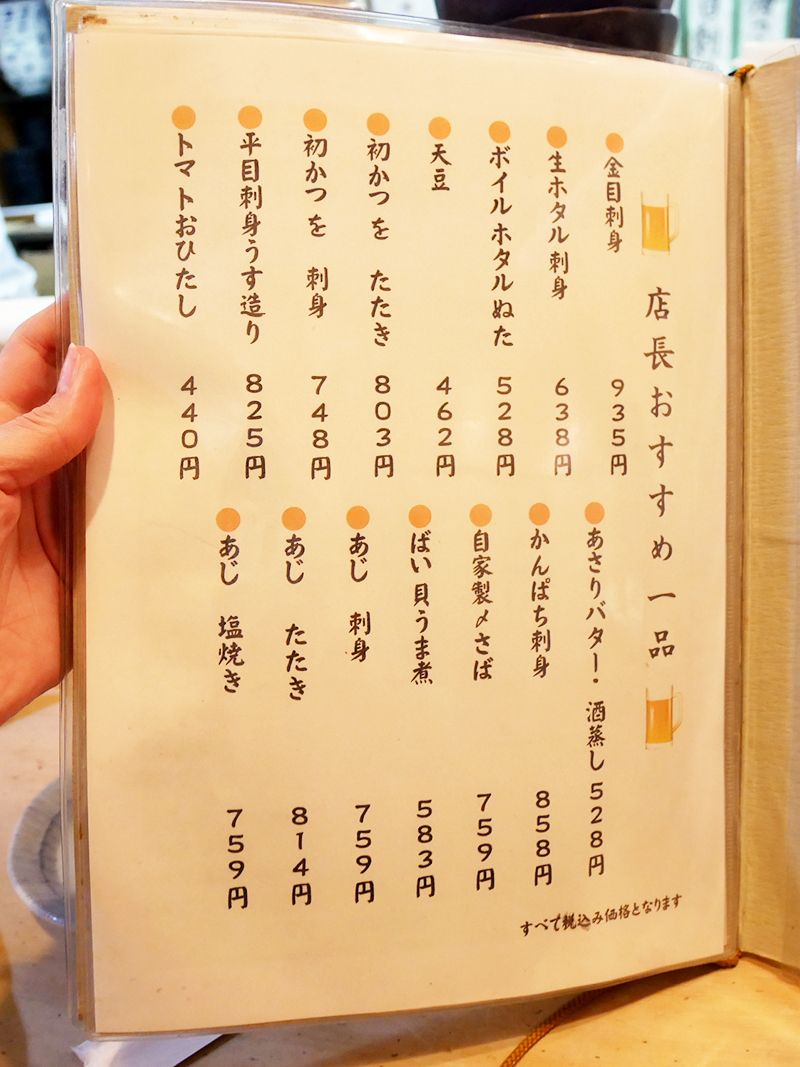 店長おすすめ一品
金目刺身 935円
生ホタル刺身 638円
ボイルホタルぬた 528円
天豆 462円
初かつを たたき 803円
初かつを 刺身 748円
平目刺身うす造り 825円
トマトおひたし 440円
あさりバター・酒蒸し 528円
かんぱち刺身 858円
自家製〆さば 759円
ばい貝うま煮 583円
あじ 刺身 759円
あじ たたき 814円
あじ 塩焼き 759円
すべて税込み価格となります